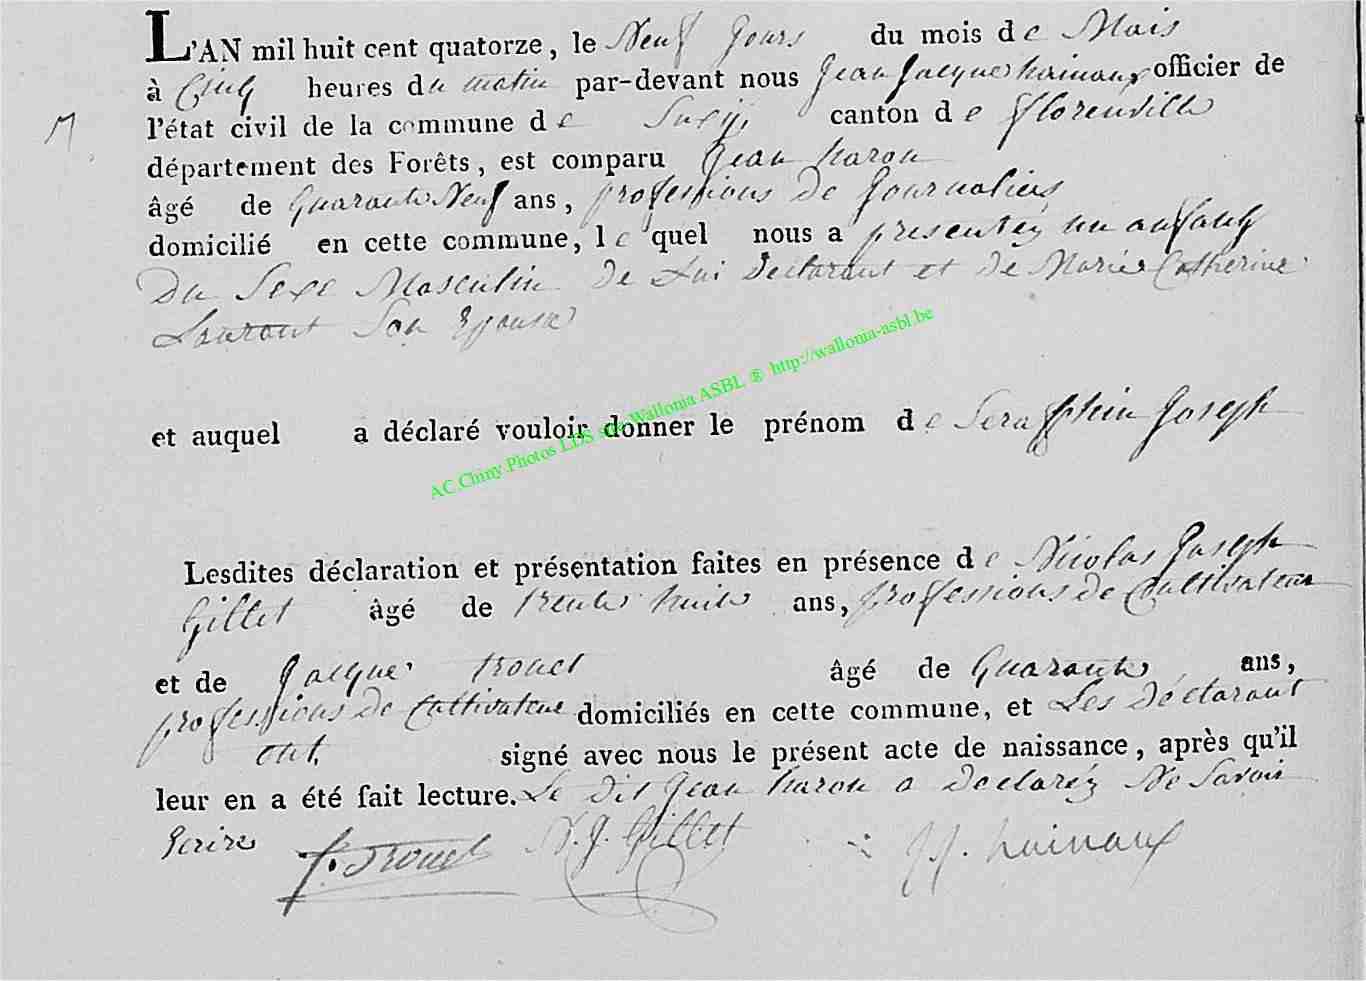 L'AN mil huit cent quatorze, le Neuf Jours du mois de Mais
à Cinq heures du matin par-devant nous Jean Jacque hainaux officier de
l'état civil de la commune de Suxÿ, canton de florenville
département des Forêts, est comparu Jean haron
âgé de Quarante Neuf ans, professions de Journaliers
domicilié en cette commune, lequel nous a presentéz un anfang
Du Sexe Masculin De Lui Declarant et de Marie Catherine
Laurant Son Epouse
et auquel a déclaré vouloir donner le prénom de Seraffhin Joseph
AC.Chiny.Photos LDS site Wallonia ASBL ® http://wallonia-asbl.be
Lesdites déclaration et présentation faites en présence de Nicolas Joseph
Gillet âgé de trente huit ans, professions de Cultivateur
et de Jacque trouet âgé de Quarante ans,
professions de Cultivateur domiciliés en cette commune, et Les Déclarant
ont signé avec nous le présent acte de naissance, après qu'il
leur en a été fait lecture. Le dit Jean haron a Declaréz Ne Savoir
Ecrire J. Trouet N. J. Gillet J J. hainaux